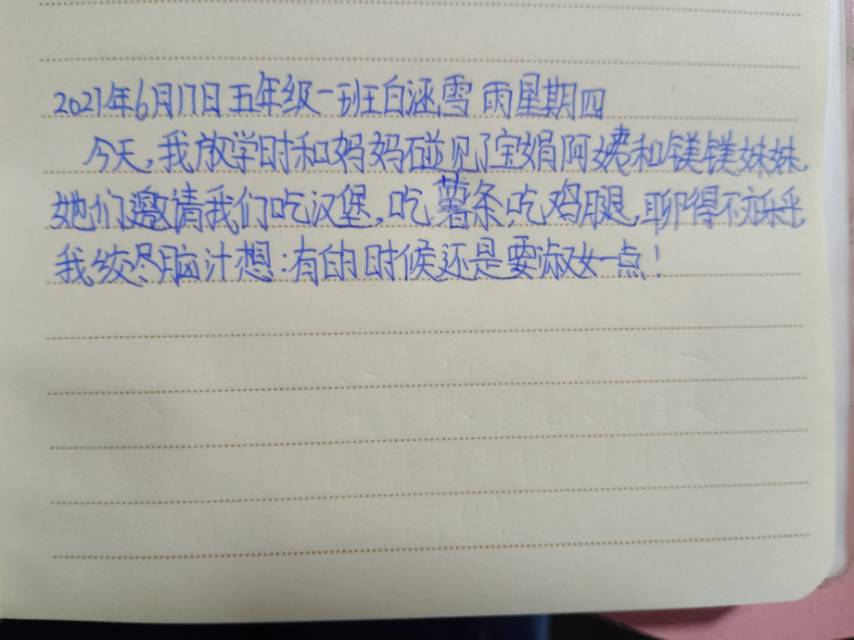 2021年6月17日五年级一班白涵雪 雨星期四
今天,我放学时和妈妈碰见了宝娟阿姨和镁镁妹妹,
她们邀请我们吃汉堡,吃薯条,吃鸡腿,聊得不亦乐乎
我绞尽脑汁想:有的时候还是要淑女一点!